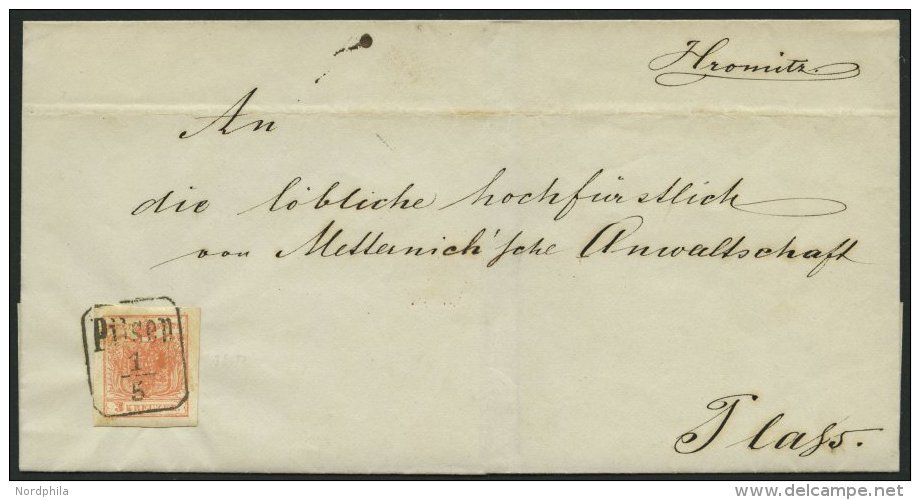 Hromitz.
An
die löbliche hochfürstlich
von Metternich'sche Anwaltschaft
Pilsen
1
5
3 KREUZER
Plass.
Nordphila
delcampe.net